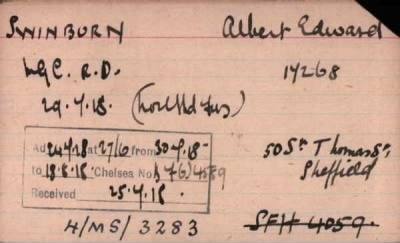 SWINBURN Albert Edward
M.G.C. R.D. 17268
29.4.18.
Ad 24.7.18 at 27/6 from 30.4.18
to 18.6.18. Chelsea No. 4589
Received 25.7.18.
50 St Thomas St,
Sheffield
H/MS/3283
SFH 4059.